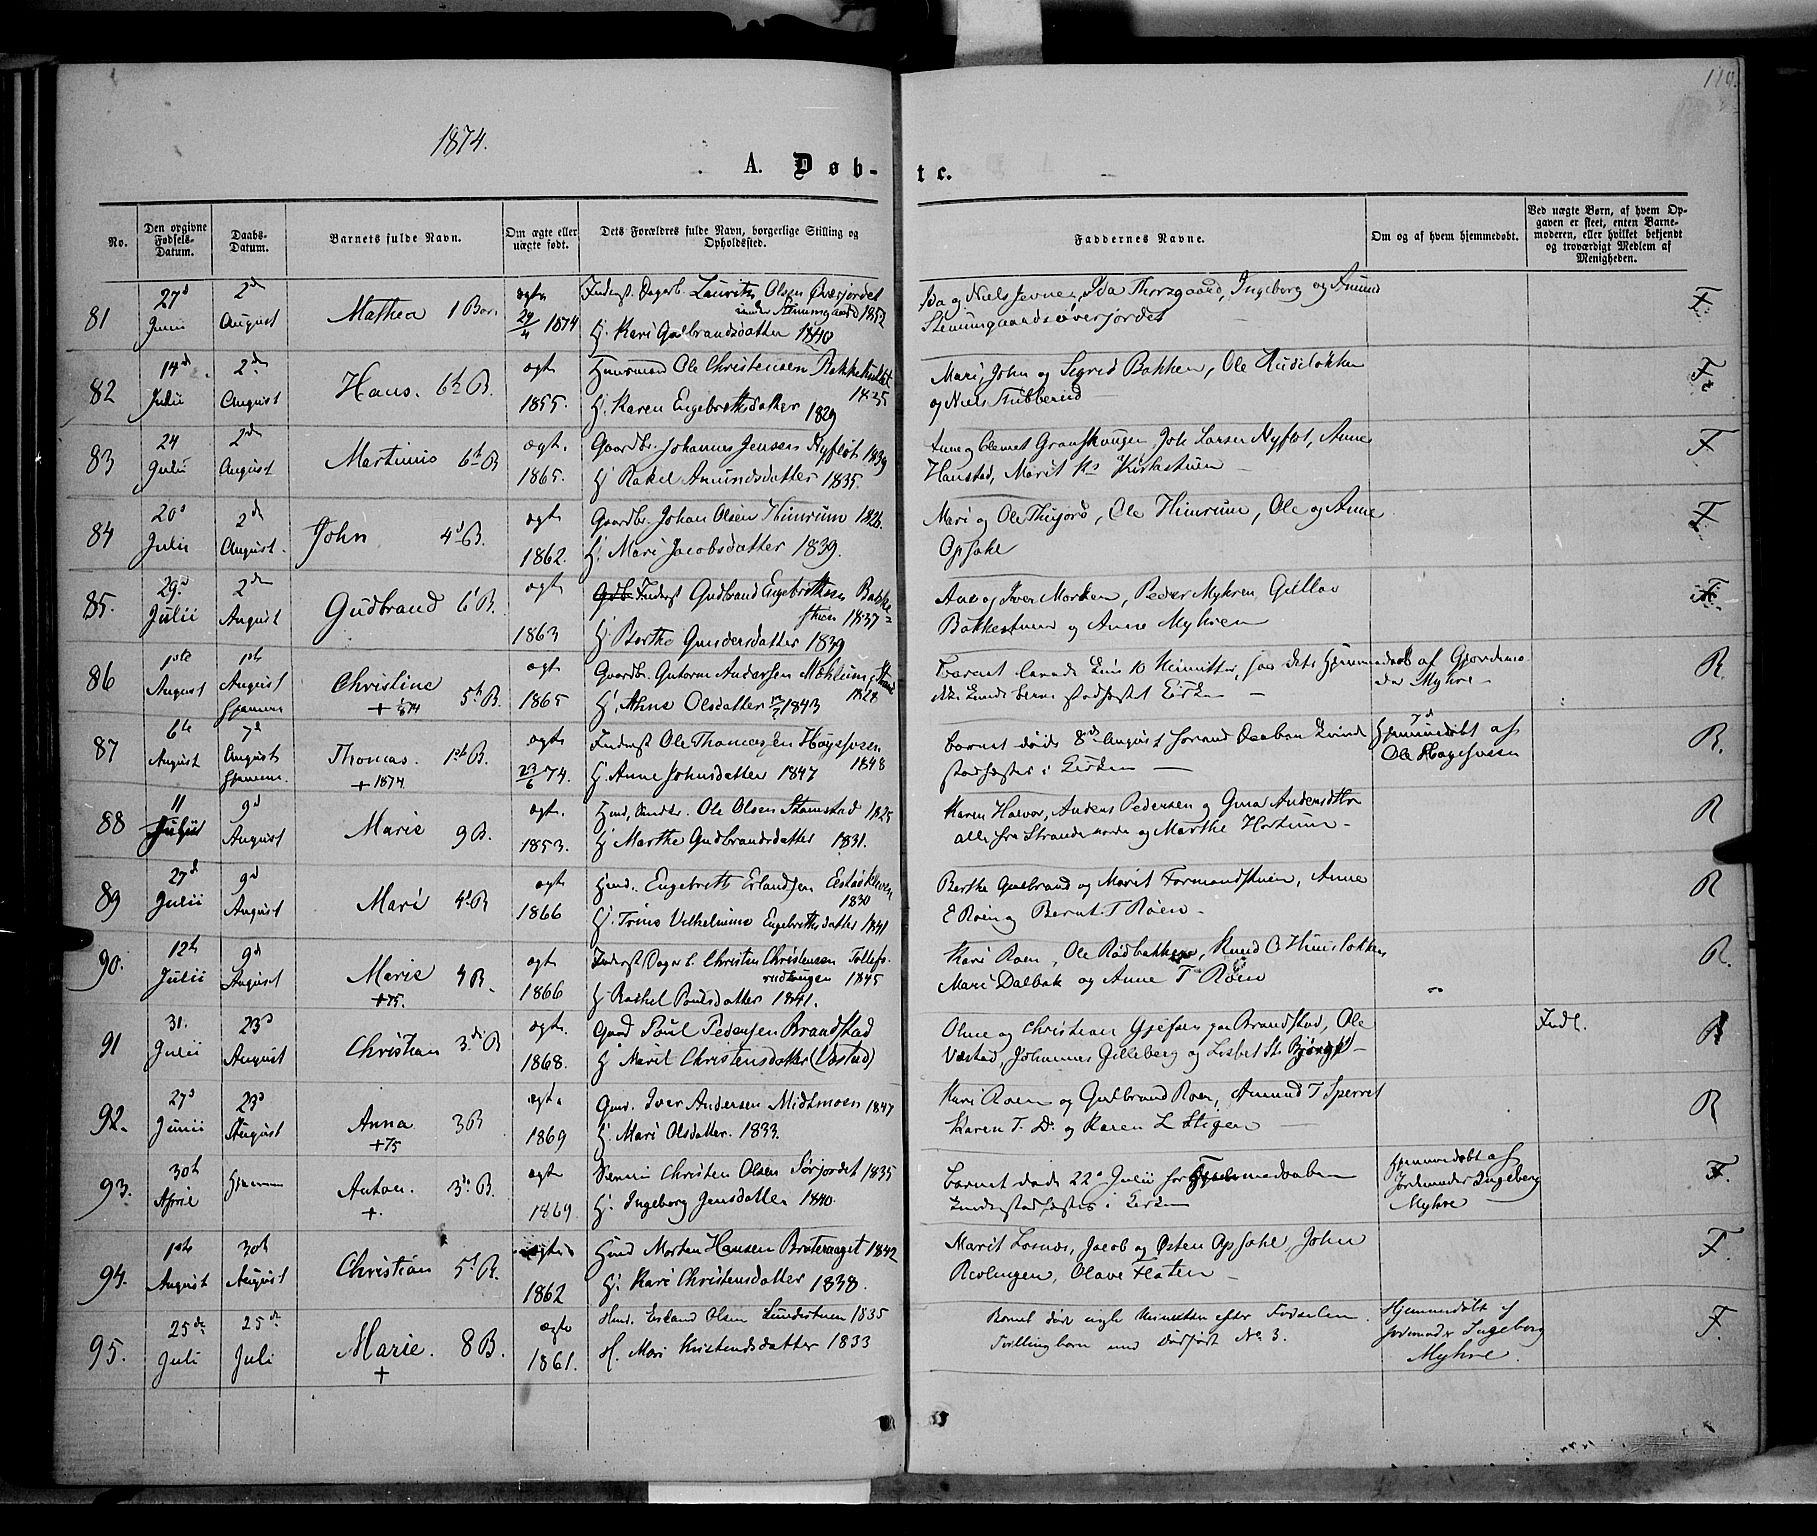 110.
1874.
A. Døb-
te.
No.
Den opgivne Fødsels-Datum.
Daabs-Datum.
Barnets fulde Navn.
Om ægte eller uægte født.
Dets Forældres fulde Navn, borgerlige Stilling og Opholdssted.
Faddernes Navne.
Om og af hvem hjemmedøbt.
Ved uægte Børn, af hvem Opgaven er skeet, enten Barnemoderen, eller hvilket bekjendt og troværdigt Medlem af Menigheden.
81 27d Juni 2d August Mathea 1 Barn ægte 29/4 1874
Inderst. Dagarb. Laurits Olsen Øverjordet
under Stenumgaard 1852
Hj. Kari Gulbrandsdatter 1840
Ida og Niels Jevne, Ida Thorsgaard, Ingeborg og Amund
Stenumgaardsøverjordet
F.
82 14d Julii 2den August Hans. 6te B. ægt. 1855.
Huusmand Ole Christensen Bakke
1835
Hj. Karen Engebrethsdatter 1829
Mari, John og Sigrid Bakken, Ole
og Niels
F.
83 24 Julii 2den August Martinus 6te B ægt. 1865.
Gaardbr. Johannes Jensen Nyfløt 1839
Hj Rakel Amundsdatter 1835.
Anne Clemet Granskougen, Joh Larsen Nyfløt, Anne
Hanstad, Marit
F
84 20d Julii 2den August. John 4d B. ægt 1862.
Gaardbr. Johan Olsen Himrum 1826
Hj. Mari Jacobsdatter 1839.
Mari og Ole Thujord, Ole Himrum, Ole og Anne
Opsahl
F
85. 29d Julii 2den August Gudbrand 6 B. ægt 1863
Inderst Gudbrand Engebrethsen Bakke-
stuen 1837
Hj Berthe Gundersdatter 1839
Ane og Iver Morken, Peder Myhren, Gullov
Bakkestuen og Anne Myhren
F.
86 1ste August 1ste August Hjemme Christine 5te B. + 1/8 74 ægt 1865
Gaardbr. Gutorm Andersen Mæhlum
1828
Hj. Ahne Olsdatter 1843
Barnet levede kun 10 Minutter, saa dets Hjemmedaab
ikke kunde blive stadfæstet i Kirken
af Gjordemo
der Myhre
R.
87 6te August 7d August Hjemme Thomas. 1ste B. + 1874 ægt 23/6 74.
Inderst Ole Thomassen Høgesveen
1848
Hj. Anne Johnsdatter 1847
Barnet døde 8de August forend Daaben kunde
stadfæstes i Kirken
7d
Hjemmedøbt af
Ole Høgesveen
R.
88 11 Julii 9d August Marie 9 B. ægt. 1853.
Ole Olsen Stamstad 1825
Hj Marthe Gudbrandsdatter 1831.
Karen Halvor, Anders Pedersen og Gina Andersdtr
alle fra Strande og Marthe Hortum
R
89 27d Julii 9d August Mari 4d B ægt 1866
Huusm. Engebrett Erlandsen
1830
Hj. Trine Vilhelmine Engebrethsdatter 1841
Berthe Gulbrand og Marit Formandstuen, Anne
E Roen og Bernt T Røen
R
90. 12te Julii 9d August Marie +75. 4 B. ægt 1866
Inderst Dagarb. Christen Christensen Tollefs-
rudhougen 1845
Hj Rachel Poulsdatter 1841.
Kari Roen, Ole Rødbakken, Knud C Huusløkken
Mari Dalbak og Anne T Røen
R.
91 31. Julii 23d August Christian 3die B ægt. 1868.
Gaard Poul Pedersen Brandstad
Hj Marit Christensdatter (Vastad)
Oline og Christian Gjefsen paa Brandstad, Ole
Vastad, Johannes Gilleberg og Lisbet
Indl.
R
92. 27d Junii 23d August Anna +75 3 B ægt. 1869
Iver Andersen Midtmoen 1847
Hj. Mari Olsdatter. 1833.
Kari Roen og Gulbrand Roen, Amund T Sperret
Karen T. D. og Karen L Stigen
R
93. 30te April Hjemme Anton. + 3die B. ægt 1869.
Christen Olsen Sørjordet 1835
Hj. Ingeborg Jensdatter 1840
Barnet døde 22d Julii før Hjemmedaaben
kunde stadfæstes i Kirken
Hjemmedøbt af
Jordemoder Ingeborg
Myhre
F.
94. 1ste August 30te August Christian 5te B. ægte 1862
Huusm Morten Hansen Braterager 1842
Hj. Kari Christensdatter 1838.
Marit Losnæs, Jacob og Østen Opsahl, John
Revlingen, Olave Flaten
F.
95. 25de Juli 25de Juli Marie. + 8 B. ægte 1861.
Huusm. Erland Olsen Lundestuen 1835
H. Mari Kristensdatter 1833
Barnet døde Minutter efter Fødselen.
Tvillingbarn med Dødfødt No 3.
Hjemmedøbt af
Jordmoder Ingeborg
Myhre.
F.